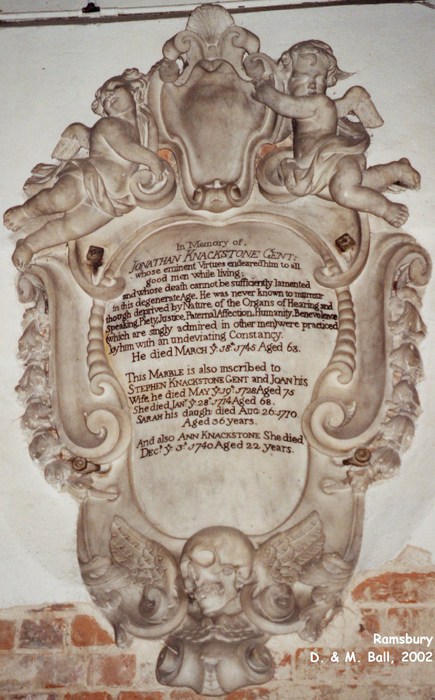 In Memory of
JONATHAN KNACKSTONE GENT:
whose eminent Virtues endeared him to all
good men while living;
and whose death cannot be sufficiently lamented
in this degenerate Age. He was never known to murmur
though deprived by Nature of the Organs of Hearing and
Speaking, Piety, Justice, Paternal Affection, Humanity, Benevolence
(which are singly admired in other men) were practiced
by him with an undeviating Constancy.
He died MARCH yͤ. 18ᵗʰ. 1745 Aged 63.
This MARBLE is also inscribed to
STEPHEN KNACKSTONE GENT and JOAN his
Wife, he died MAY yͤ. 19ᵗʰ. 1728 Aged 75
She died JANʸ. yͤ 28ᵗʰ. 1714 Aged 68.
SARAH his daugh: died AUG: 26. 1710
Aged 36 years.
And also ANN KNACKSTONE She died
DECʳ. yͤ 3ᵈ. 1740 Aged 22 years.
Ramsbury
D. & M. Ball, 2002